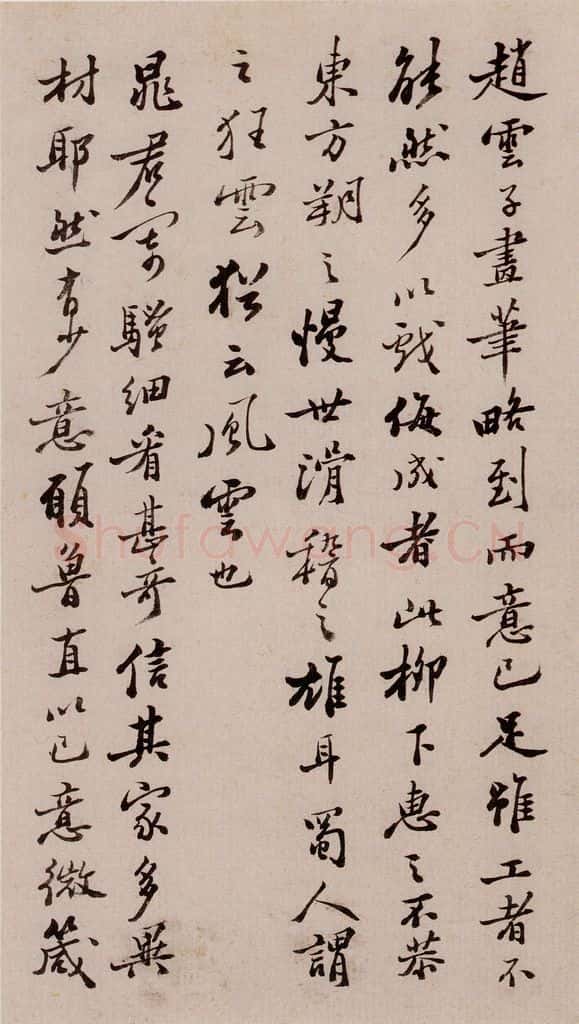 趙雲子畫筆略到而意已足雖工者不
能然多以戲侮成者此柳下惠之不恭
東方朔之慢世滑稽之雄耳蜀人謂
之狂雲猶云風雲也
晁君寄騷細看甚奇信其家多異
材耶然有少意願魯直以己意微箴
Shufawang.CN